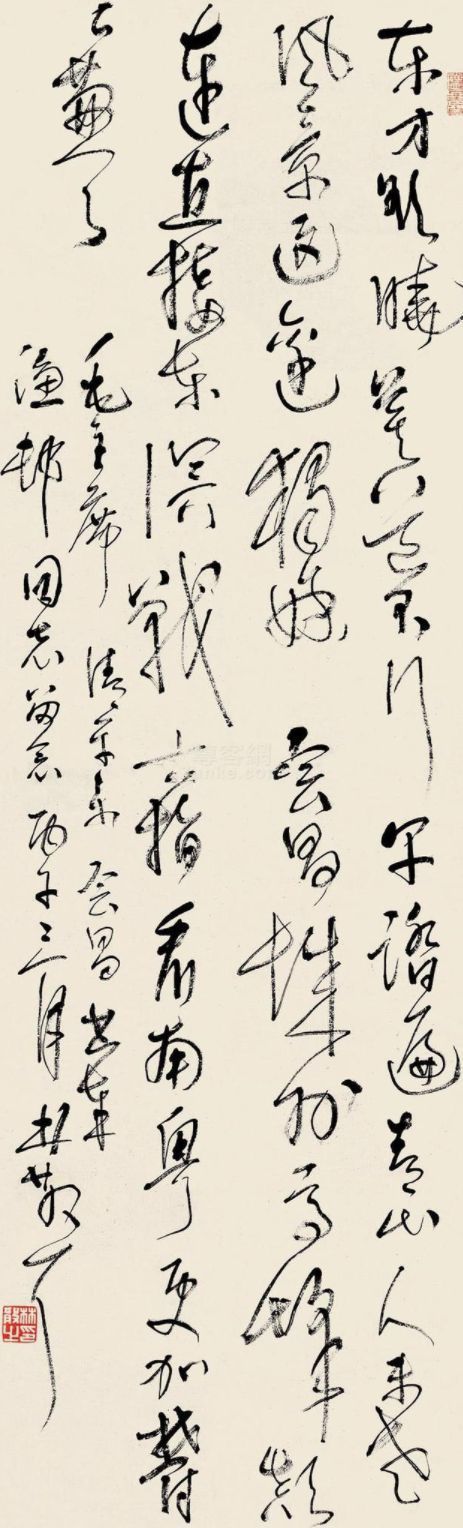 东方欲晓莫道君行早踏遍青山人未老
风景这边独好会昌城外高峰颠
连直接东溟战士指看南粤更加郁
々葱々
毛主席清平乐会昌书奉
邨同志留念丙午三月林散耳